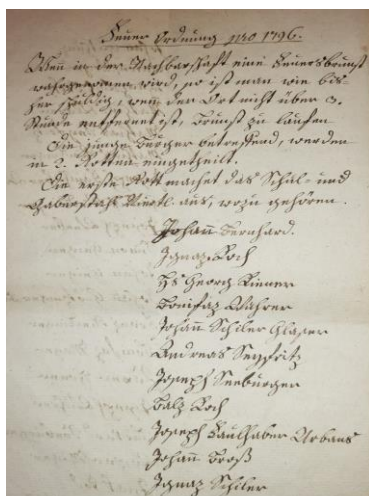 Feuer Ordnung pro 1796.
Wen in der Nachbarschaft eine Feuersbrunst
wahrgenomen wird, so ist man wie bis-
her schuldig, wen der Ort nicht über 3.
Stunde entfernt ist, Brunst zu laufen
Die junge Burger betreffend, werden
in 2. Rotten eingetheilt.
Die erste Rott machet das Schul- und
Viertl aus, wozu gehören.
Johann Bernhard.
Ignaz Koch
Hs Georg Kiener
Bonifaz Wahrer
Johann Schiler Glaser
Andreas Seyfritz
Joseph Seeburger
Balz Koch
Joseph Faulhaber Urbans
Johann Broß
Ignaz Schiler